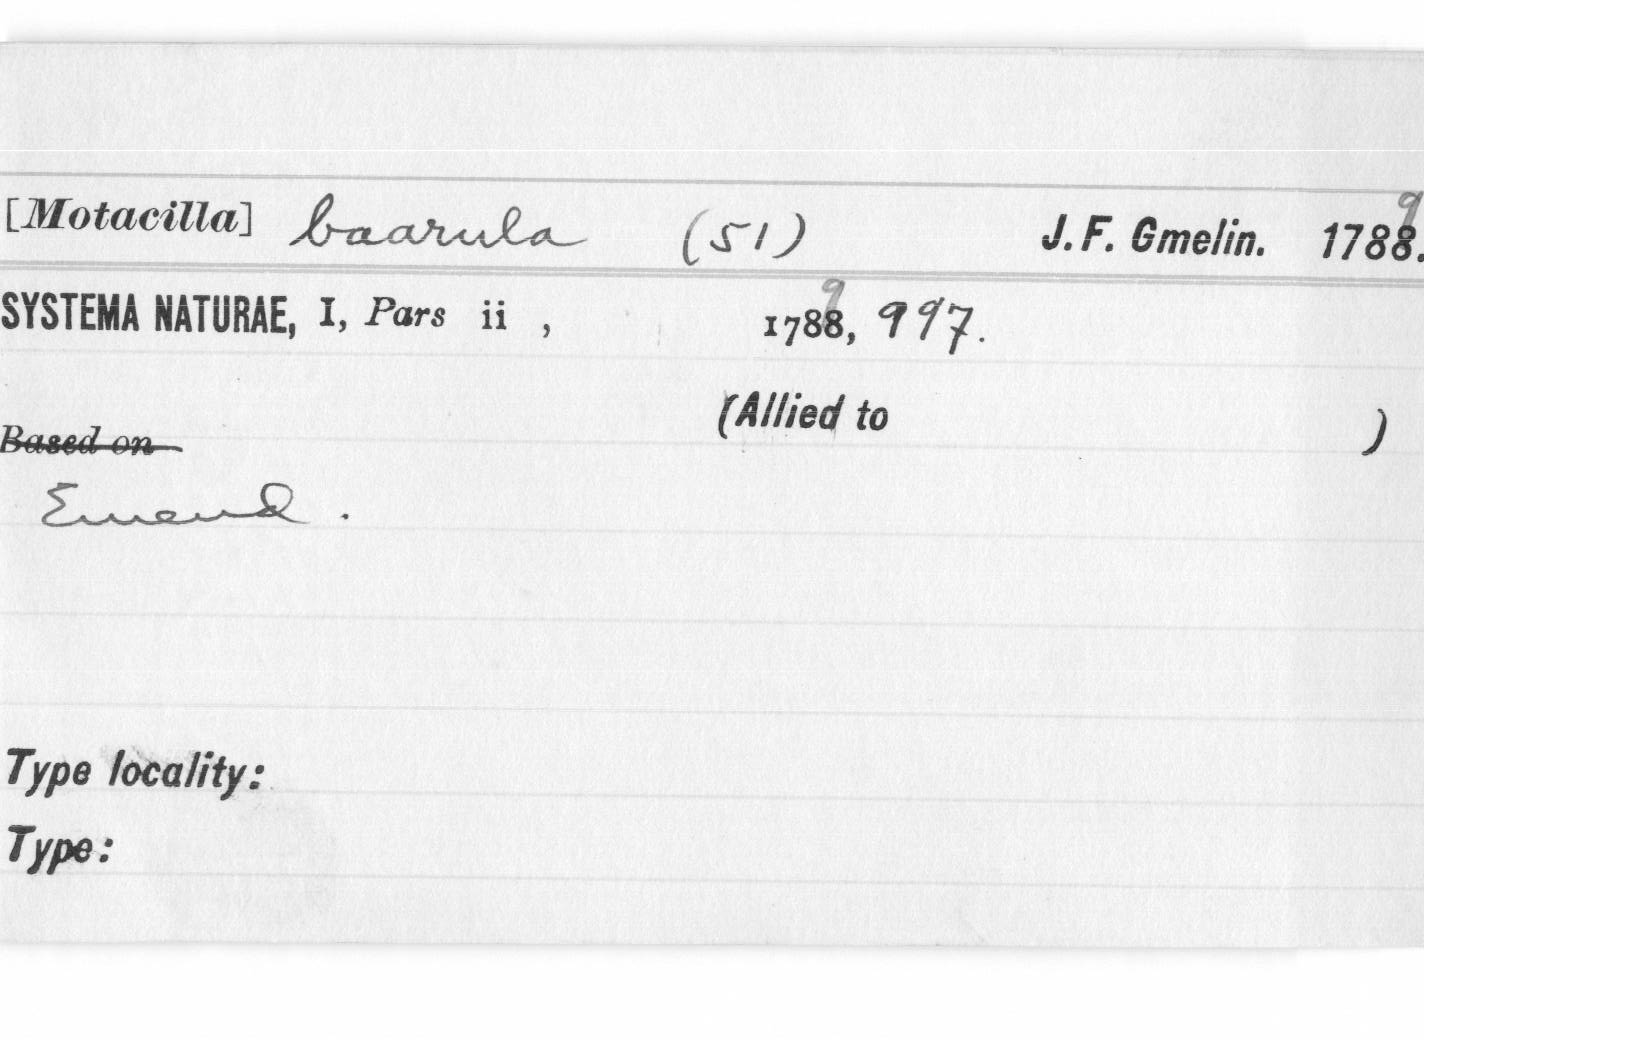 [Motacilla] baarula (51) J. F. Gmelin. 1788. 9
SYSTEMA NATURAE, I, Pars ii , 1788, 9 997.
(Allied to )
Based on
Emend.
Type locality:
Type: